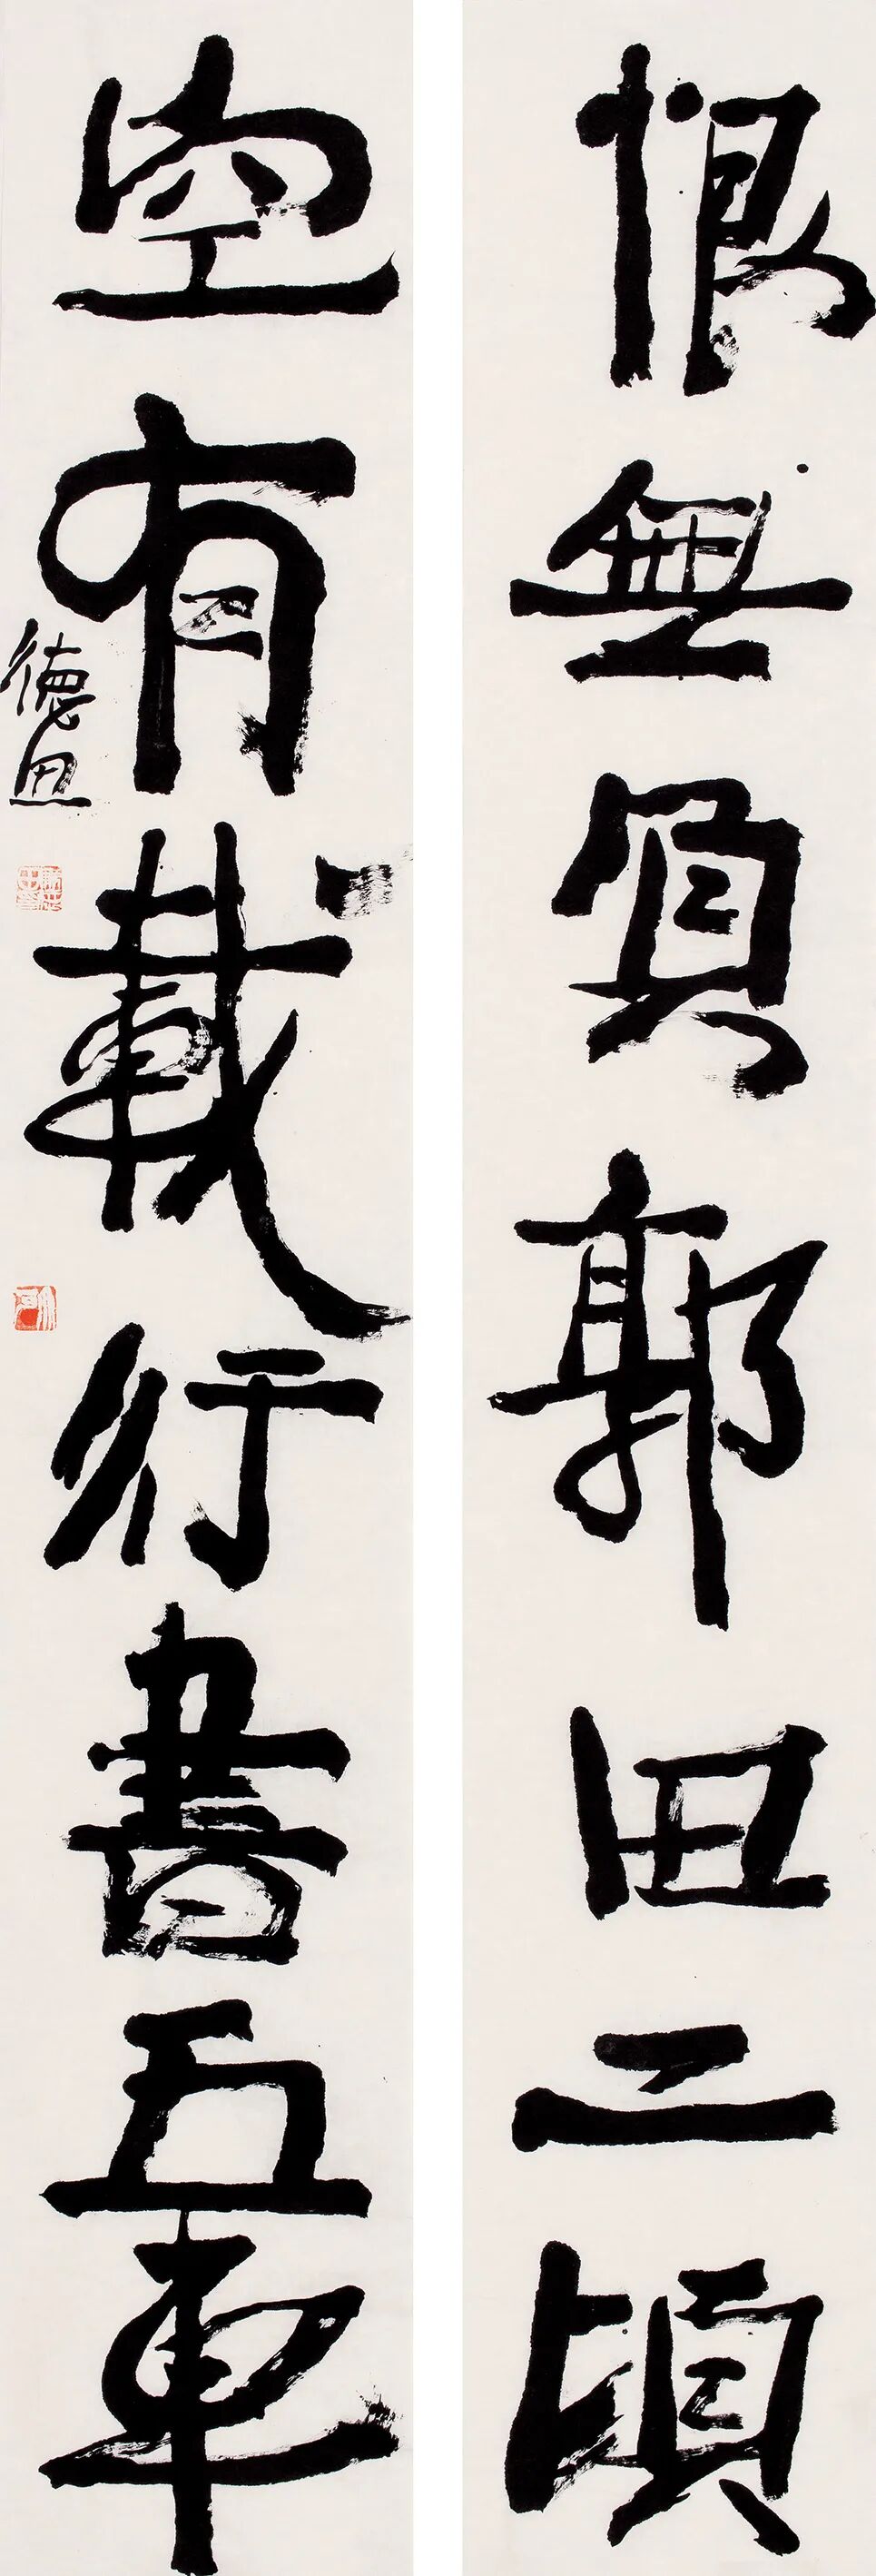 恨無負郭田二頃
空有載行書五車
德思